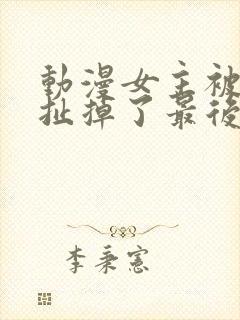 動漫女主被
扯掉了最後
李秉憲